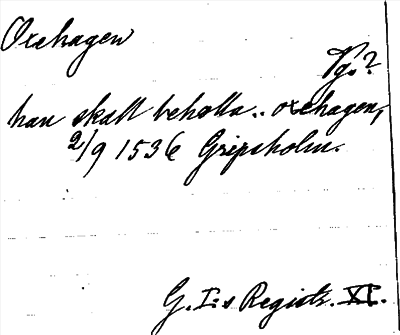 Oxehagen
Vg.?
han skall beholla.. oxehagen,
2/9 1536 Gripsholm.
G. I:s Registr. XI.